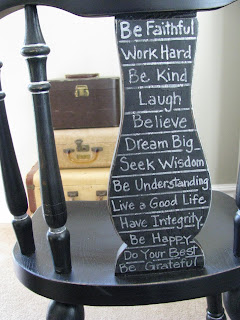 Be Faithful
Work Hard
Be Kind
Laugh
Believe
Dream Big
Seek Wisdom
Be Understanding
Live a Good Life
Have Integrity
Be Happy
Do Your Best
Be Grateful